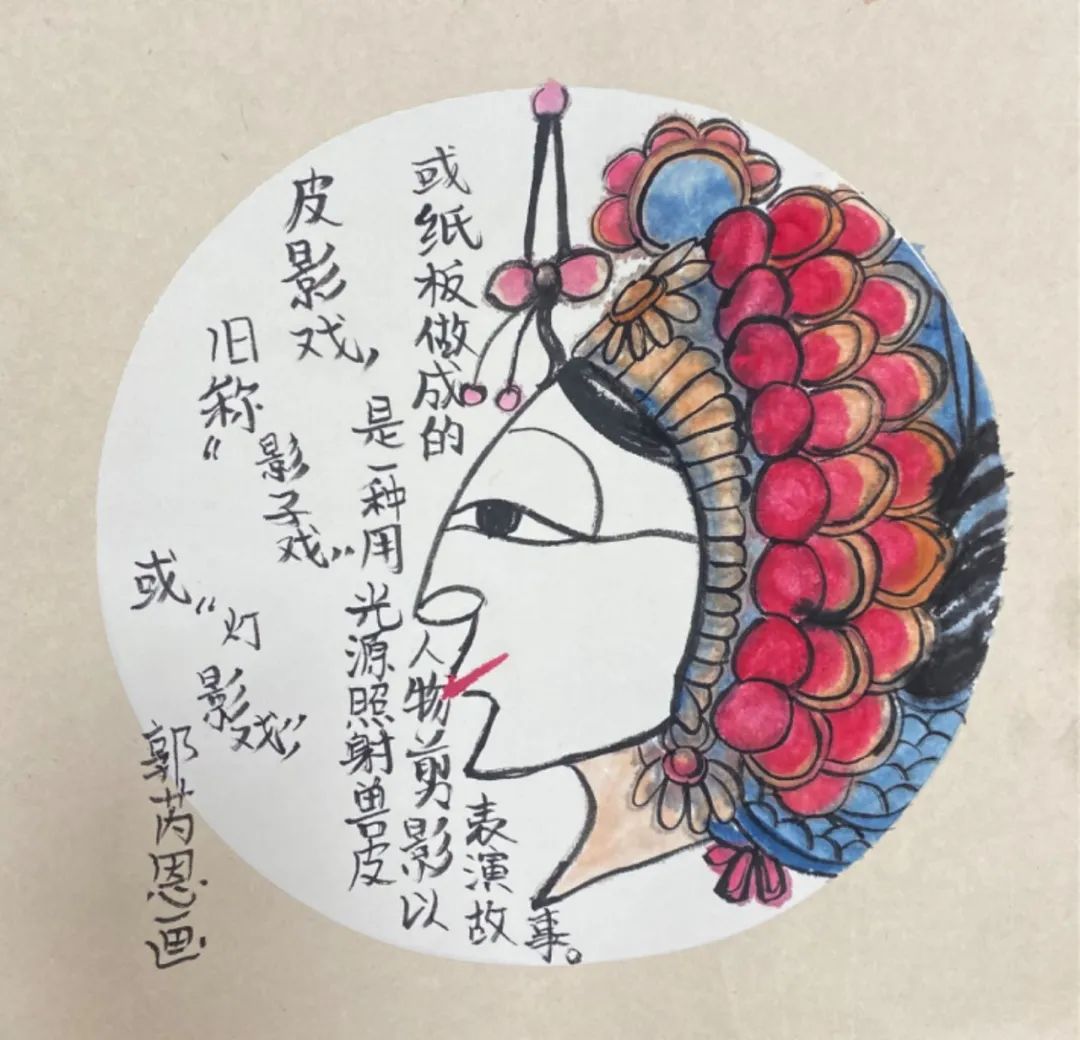 皮影戏,
旧称“
影子戏”
或“灯
影戏”,
是一种用
光源照射兽皮
或纸板做成的
人物剪影以
表演故
事。
郭芮恩画